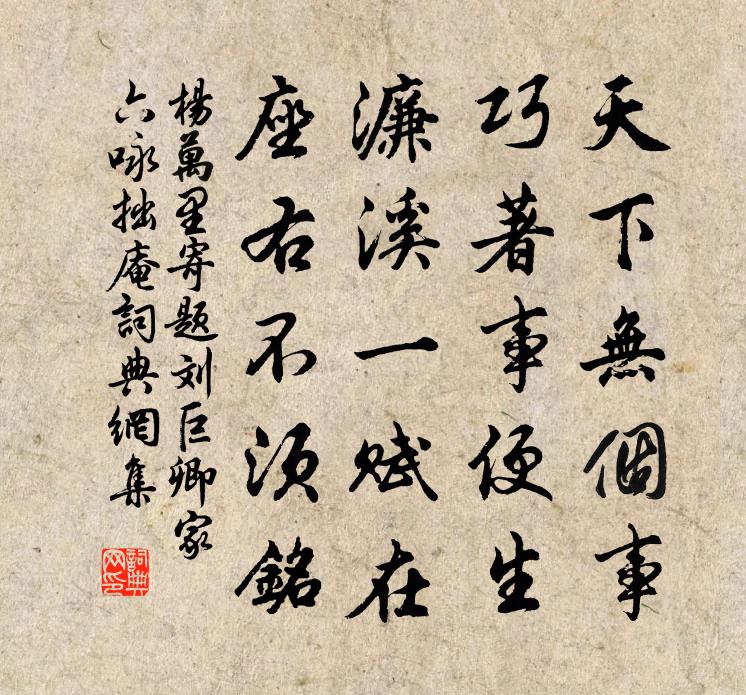 天下無個事
巧著事便生
濂溪一賦在
座右不須銘
楊萬里寄題刘巨卿家
六咏拙庵詞典網集
詞典网印